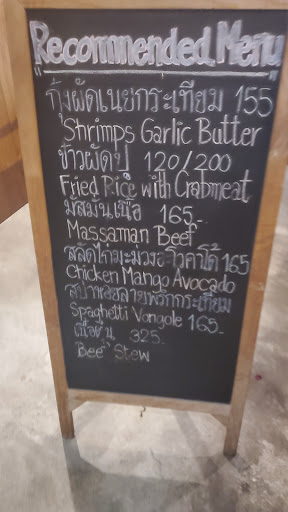 "Recommended Menu"
กุ้งผัดเนยกระเทียม 155
Shrimps Garlic Butter
ข้าวผัดปู 120/200
Fried Rice with Crabmeat
มัสมั่นเนื้อ 165.-
Massaman Beef
สลัดไก่มะม่วงอะโวคาโด้ 165
Chicken Mango Avocado
สปาหอยลายพริกกระเทียม
Spaghetti Vongole 165.-
เนื้อตุ๋น 325.
Beef Stew